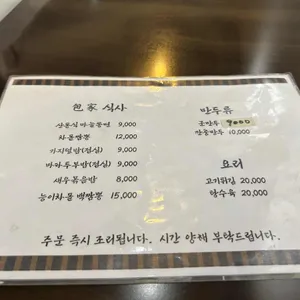 包家 식사
산동식 마늘쫑면 9,000
차돌짬뽕 12,000
가지덮밥(점심) 9,000
마파두부밥(점심) 9,000
새우볶음밥 8,000
능이차돌 백짬뽕 15,000
만두류
군만두 9000
찐중만두 10,000
요리
고기튀김 20,000
탕수육 20,000
주문 즉시 조리됩니다. 시간 양해 부탁드립니다.